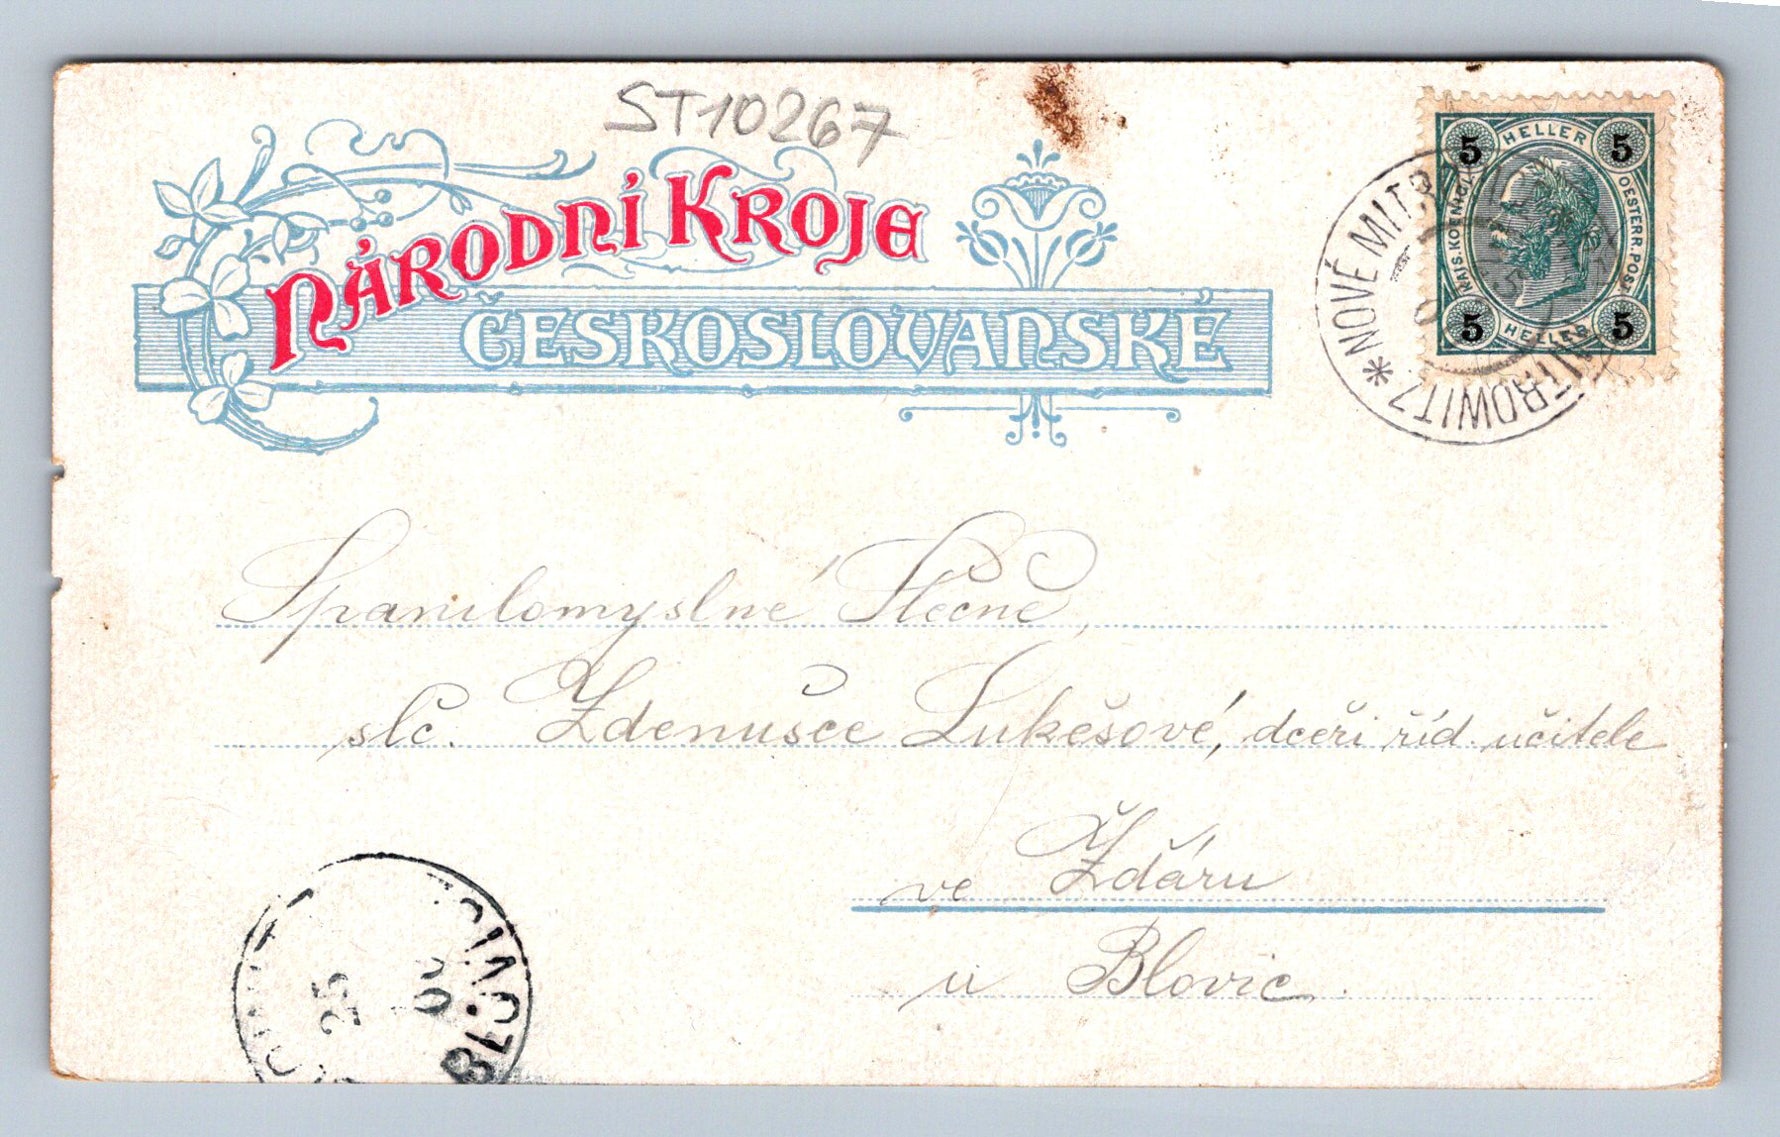 ST10267
NÁRODNÍ KROJE
ČESKOSLOVANSKÉ
5 HELLER 5
KAIS. KOENIGL. OESTERR. POST
5 HELLER 5
* NOVÉ MITR
MITROWITZ
Spanilomyslné Slečně,
slč. Zdenušce Lukešové, dceři říd. učitele
ve Žďáru
u Blovic.
25
00